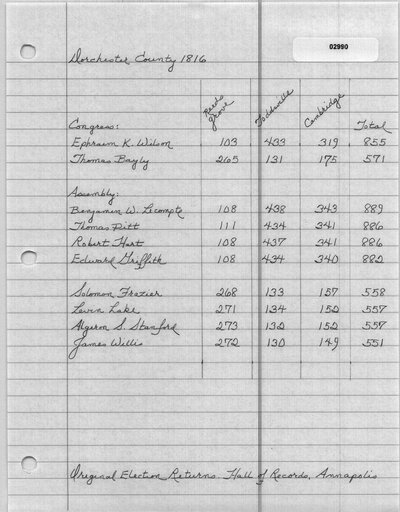 02990
Dorchester County 1816
Reeds Grove Toddsville Cambridge Total
Congress:
Ephraim K. Wilson 103 433 319 855
Thomas Bayly 265 131 175 571
Assembly:
Benjamin W. Lecompte 108 438 343 889
Thomas Pitt 111 434 341 886
Robert Hart 108 437 341 886
Edward Griffith 108 434 340 882
Solomon Frazier 268 133 157 558
Levin Lake 271 134 152 557
Algeron S. Stanford 273 132 152 557
James Willis 272 130 149 551
Original Election Returns Hall of Records, Annapolis